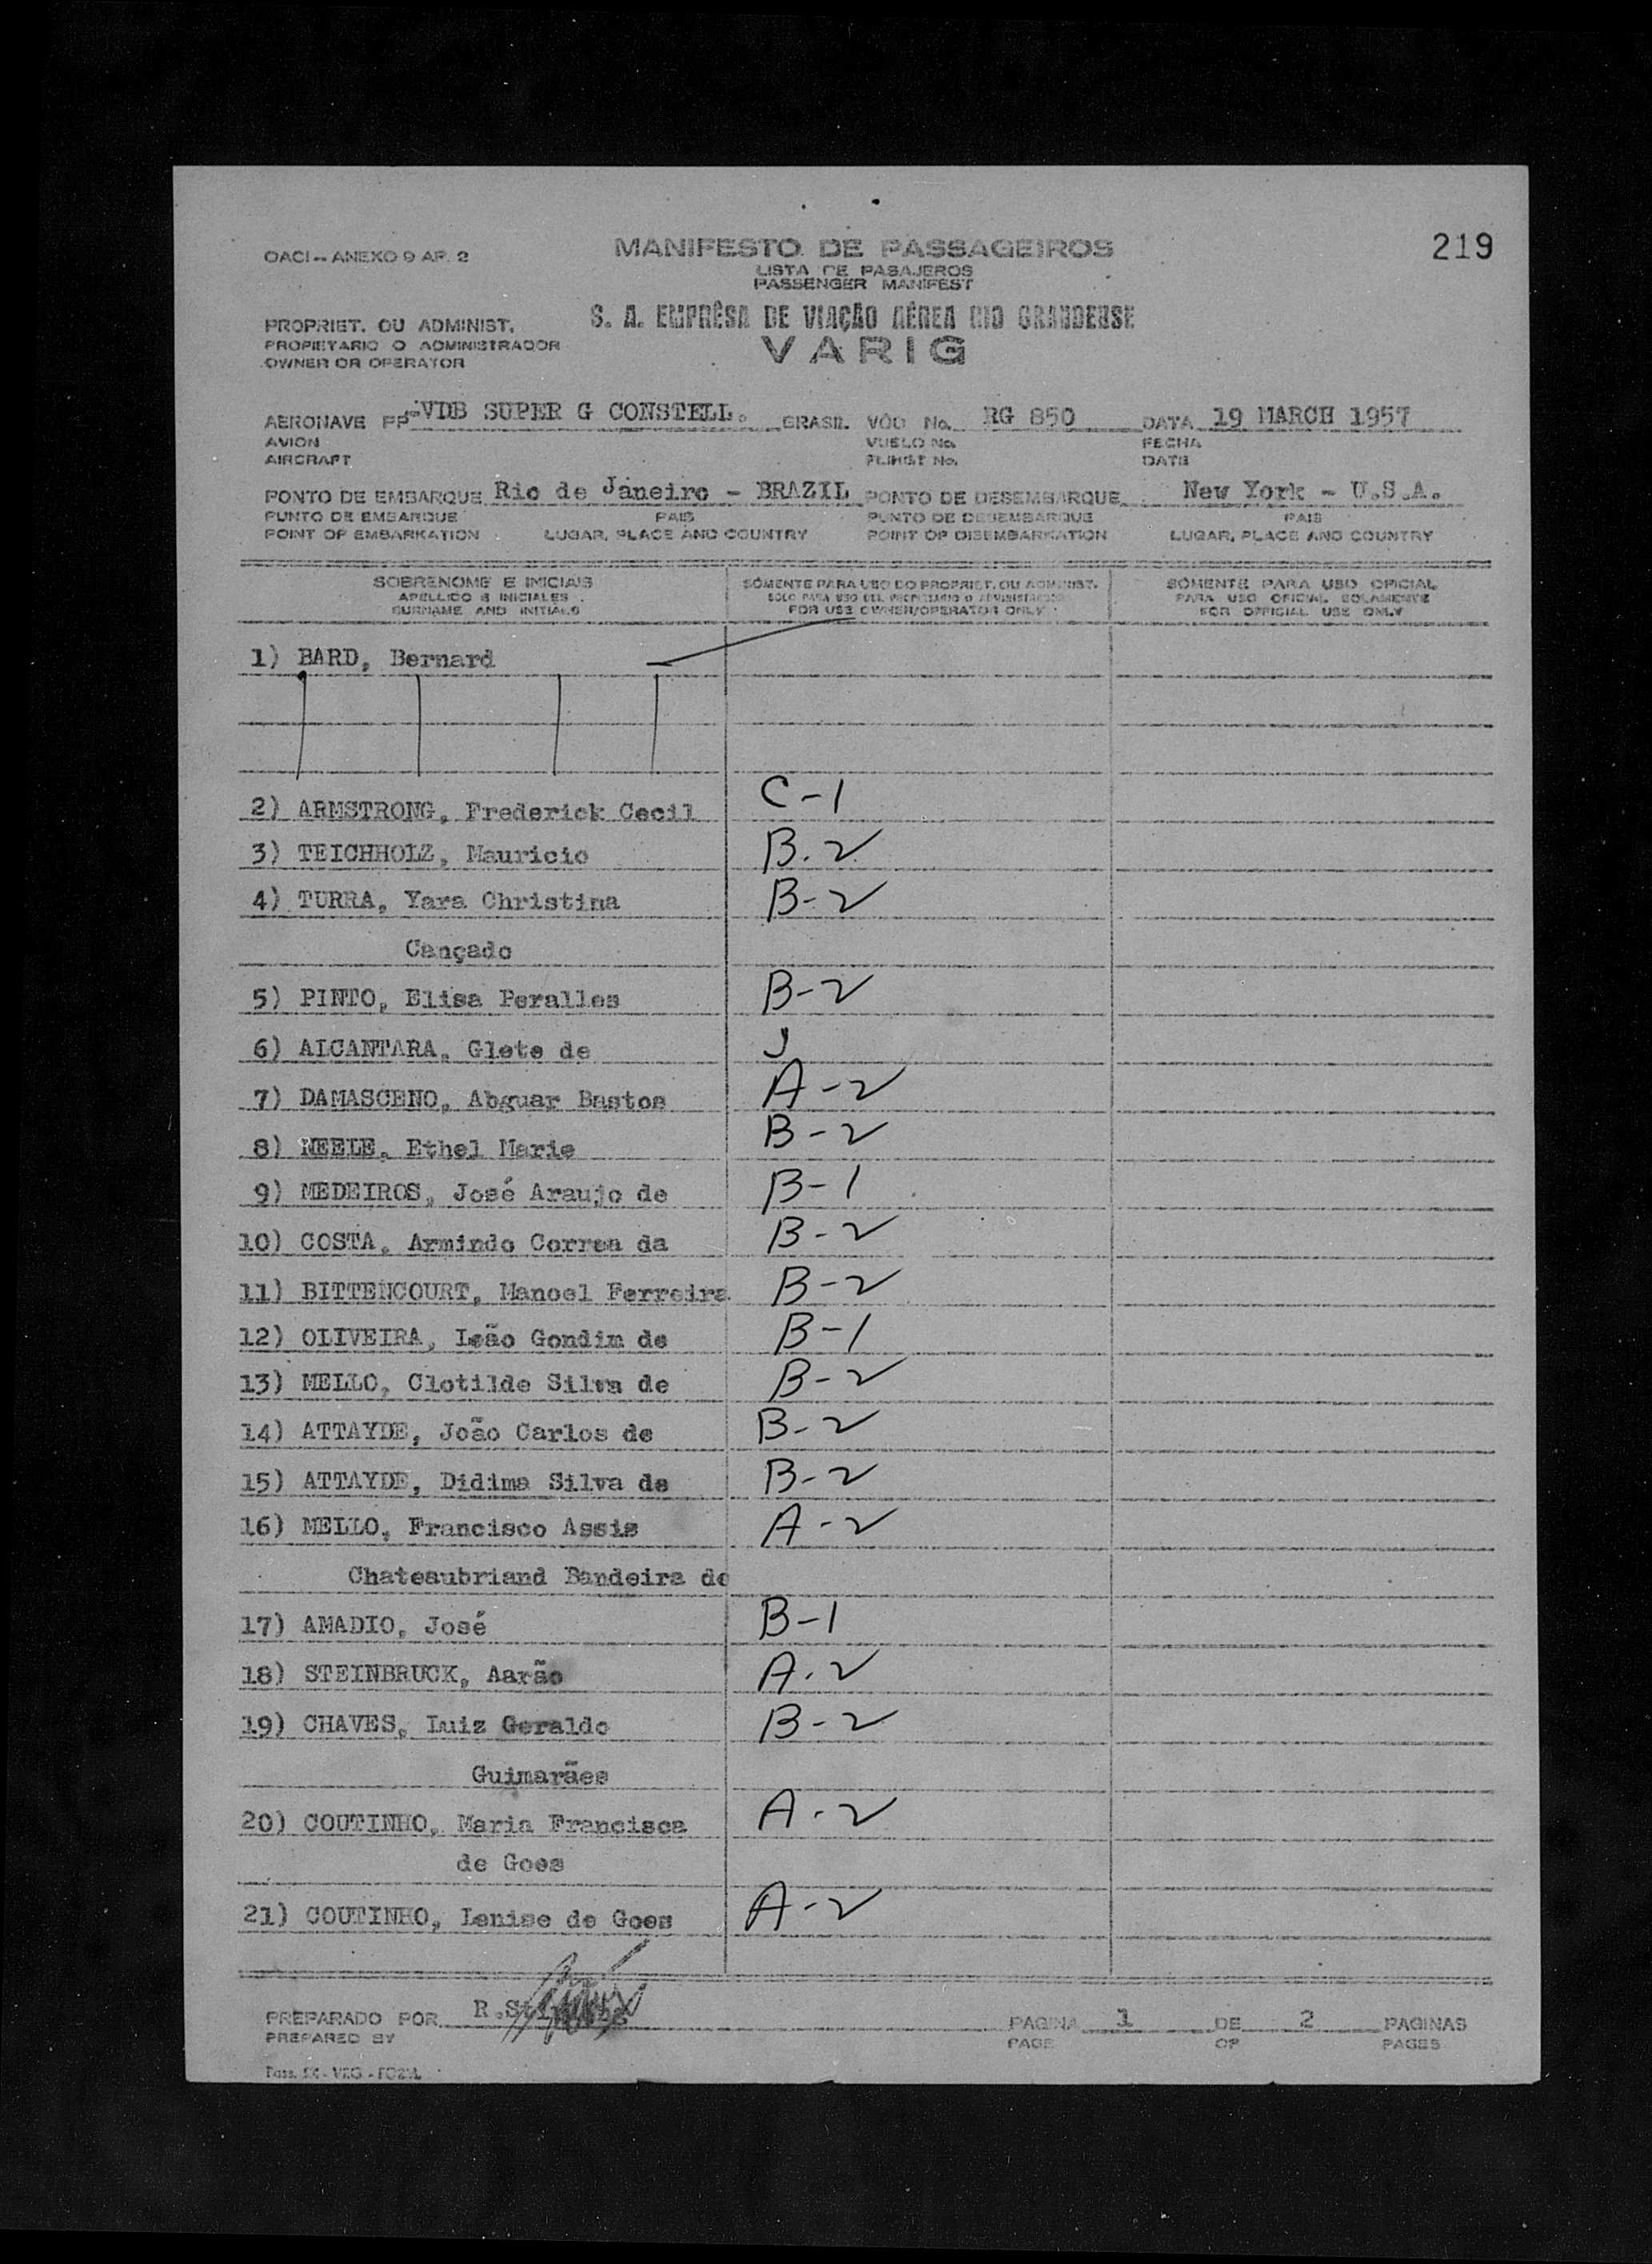 219
OACI - ANEXO 9 AP. 2
MANIFESTO DE PASSAGEIROS
LISTA DE PASAJEROS
PASSENGER MANIFEST
PROPRIET. OU ADMINIST.
PROPIETARIO O ADMINISTRADOR
OWNER OR OPERATOR
S. A. EMPRÊSA DE VIAÇÃO AÉREA RIO GRANDENSE
VARIG
AERONAVE PP -VDB SUPER G CONSTELL. BRASIL VÔO No. RG 850 DATA 19 MARCH 1957
AVION VUELO No. FECHA
AIRCRAFT FLIHGT No. DATE
PONTO DE EMBARQUE Rio de Janeiro - BRAZIL PONTO DE DESEMBARQUE New York - U.S.A.
PUNTO DE EMBARQUE PAIS PUNTO DE DESEMBARQUE PAIS
POINT OF EMBARKATION LUGAR, PLACE AND COUNTRY POINT OF DISEMBARKATION LUGAR, PLACE AND COUNTRY
SOBRENOME E INICIAIS SÓMENTE PARA USO DO PROPRIET. OU ADMINIST. SÓMENTE PARA USO OFICIAL
APELLIDO E INICIALES SOLO PARA USO DEL PROPIETARIO O ADMINISTRADOR PARA USO OFICIAL SOLAMENTE
SURNAME AND INITIALS FOR USE OWNER/OPERATOR ONLY FOR OFFICIAL USE ONLY
1) BARD, Bernard
2) ARMSTRONG, Frederick Cecil C-1
3) TEICHHOLZ, Mauricio B.2
4) TURRA, Yara Christina B-2
Cançado
5) PINTO, Elisa Peralles B-2
6) ALCANTARA, Glete de J
7) DAMASCENO, Abguar Bastos A-2
8) NEELE, Ethel Marie B-2
9) MEDEIROS, José Araujo de B-1
10) COSTA, Armindo Correa da B-2
11) BITTENCOURT, Manoel Ferreira B-2
12) OLIVEIRA, Leão Gondim de B-1
13) MELLO, Clotilde Silva de B-2
14) ATTAYDE, João Carlos de B-2
15) ATTAYDE, Didima Silva de B-2
16) MELLO, Francisco Assis A-2
Chateaubriand Bandeira de
17) AMADIO, José B-1
18) STEINBRUCK, Aarão A.2
19) CHAVES, Luiz Geraldo B-2
Guimarães
20) COUTINHO, Maria Francisca A.2
de Goes
21) COUTINHO, Lenise de Goes A-2
PREPARADO POR R. PAGINA 1 DE 2 PAGINAS
PREPARED BY PAGE OF PAGES